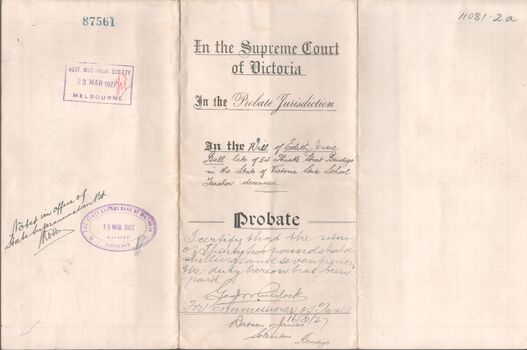 87561
AUST. MUT. PROV. SOCIETY
23 MAR 1927
MELBOURNE
Noted in office of
State Superannuation Bd
THE STATE SAVINGS BANK OF VICTORIA
19 MAR 1927
In the Supreme Court
of Victoria
In the Probate Jurisdiction
In the Will of Edith Jessie
Gall late of 54 Thistle Street Bendigo
in the State of Victoria State School
Teacher deceased
Probate
I certify that the sum
of Thirty two pounds twelve
shillings and seven pence
the duty hereon has been
paid
For Commissioner of Taxes
16/3/27
Watson & James
Solicitors
Bendigo
11081-2a